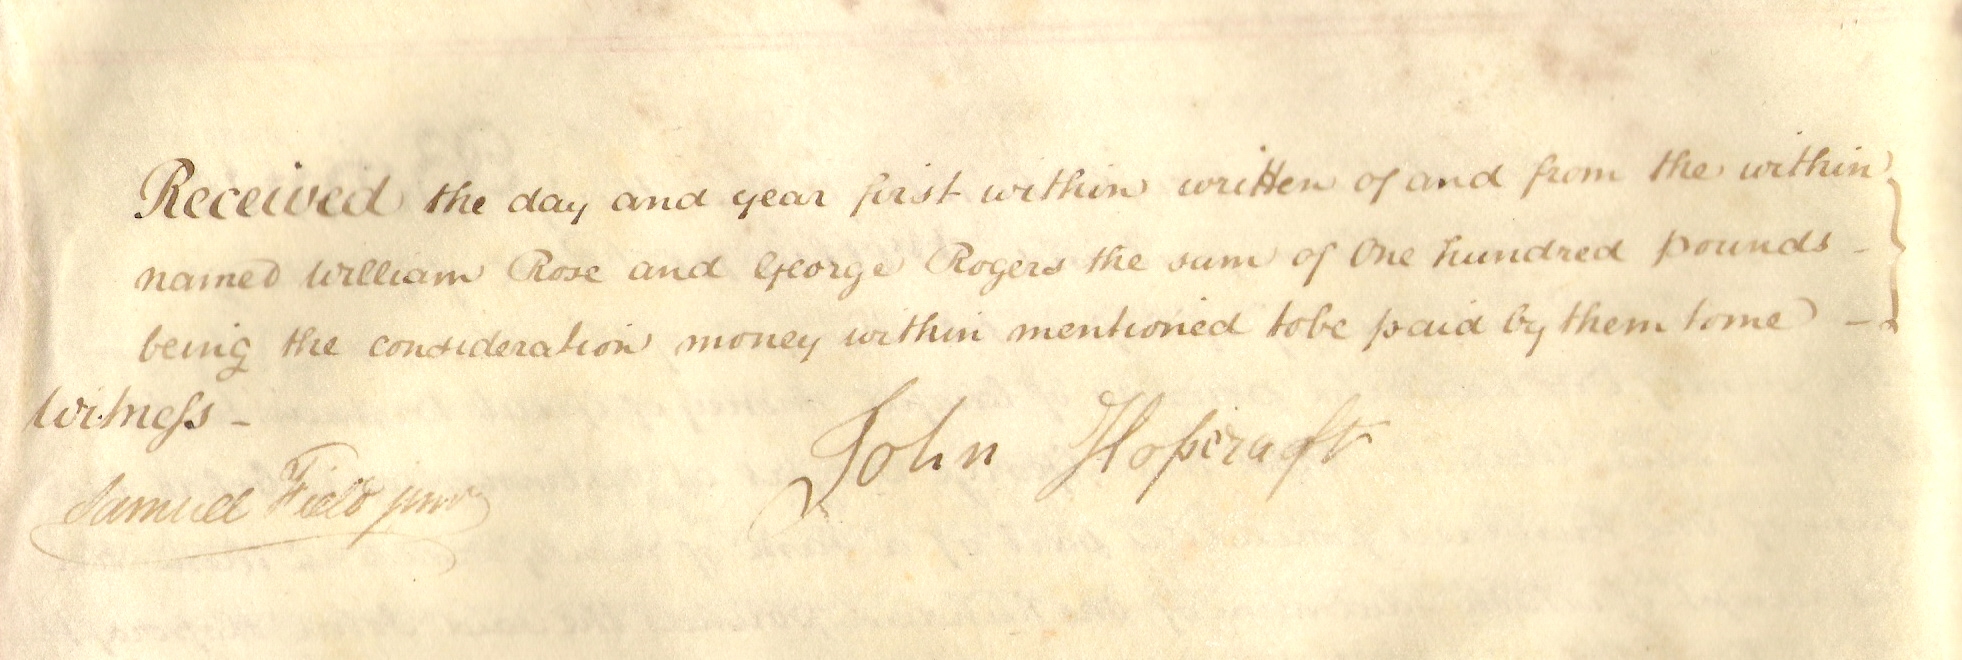 Received the day and year first within written of and from the within
named William Rose and George Rogers the sum of One hundred pounds -
being the consideration money within mentioned tobe paid by them tome -
Witness -
John Hopcraft
Samuel Field junr